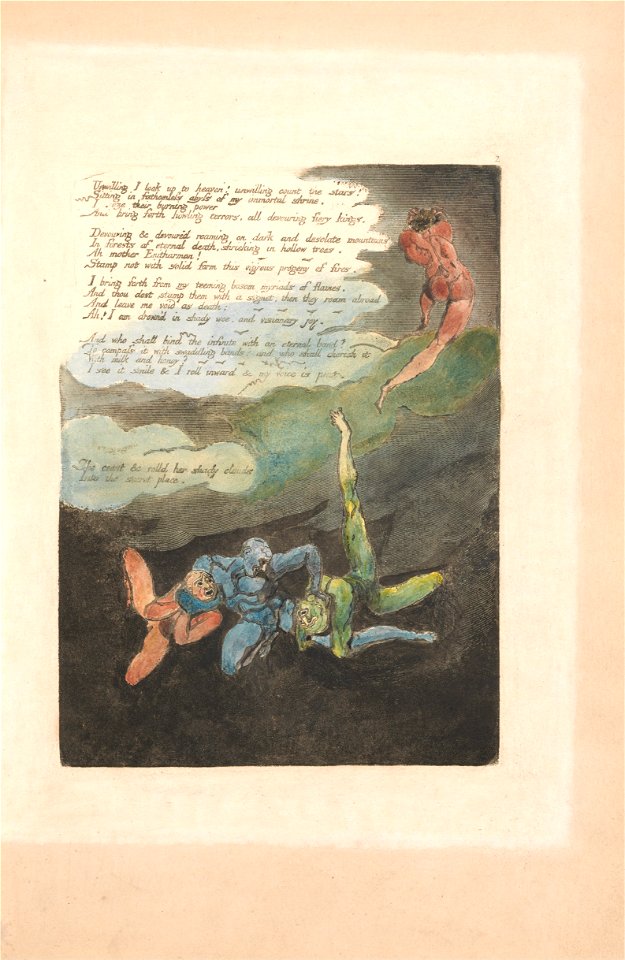 2
Unwilling I look up to heaven! unwilling count the stars!
Sitting in fathomless abyss of my immortal shrine.
their burning power
And bring forth howling terrors, all devouring fiery kings.
Devouring & devoured roaming on dark and desolate mountains
In forests of eternal death, shrieking in hollow trees.
Ah mother Enitharmon!
Stamp not with solid form this vig'rous progeny of fires.
I bring forth from my teeming bosom myriads of flames.
And thou dost stamp them with a signet, then they roam abroad
And leave me void as death:
Ah! I am drown'd in shady woe, and visionary joy.
And who shall bind the infinite with an eternal band?
To compass it with swaddling bands? and who shall cherish it
With milk and honey?
I see it smile & I roll inward & my voice is past.
She ceast & rolld her shady clouds
Into the secret place.